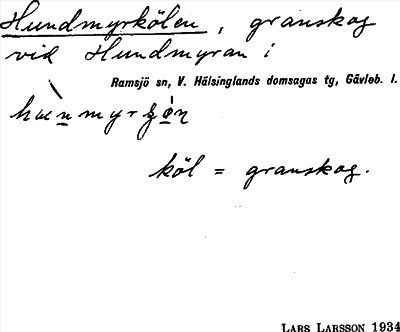 Hundmyrkölen, granskog
vid Hundmyran i
Ramsjö sn, V. Hälsinglands domsagas tg, Gävleb. l.
köl = granskog.
LARS LARSSON 1934